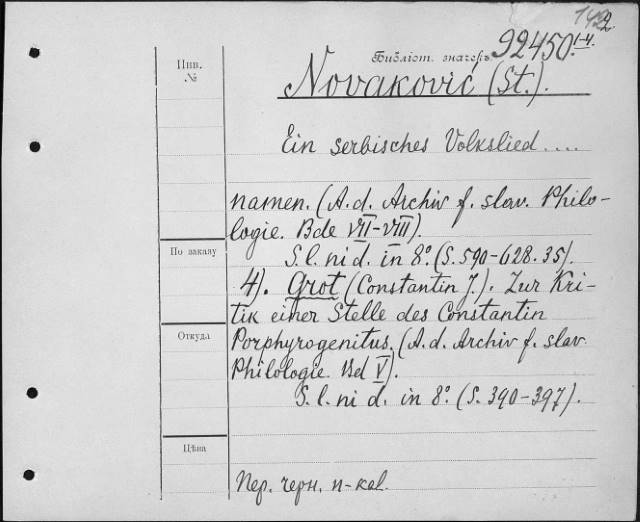 1422
Инв.
№
Библіот. значекъ 92450 I-V.
Novaković (St.).
Ein serbisches Volkslied ....
namen. (A. d. Archiv f. slav. Philo-
logie. Bde VII-VIII).
По заказу
S. l. ni d. in 8º. (S. 590-628. 35).
4). Grot (Constantin J.). Zur Kri-
tik einer Stelle des Constantin
Откуда
Porphyrogenitus. (A. d. Archiv f. slav.
Philologie. Bd V).
S. l. ni d. in 8º. (S. 390-397).
Цѣна
Пер. черн. п-кал.